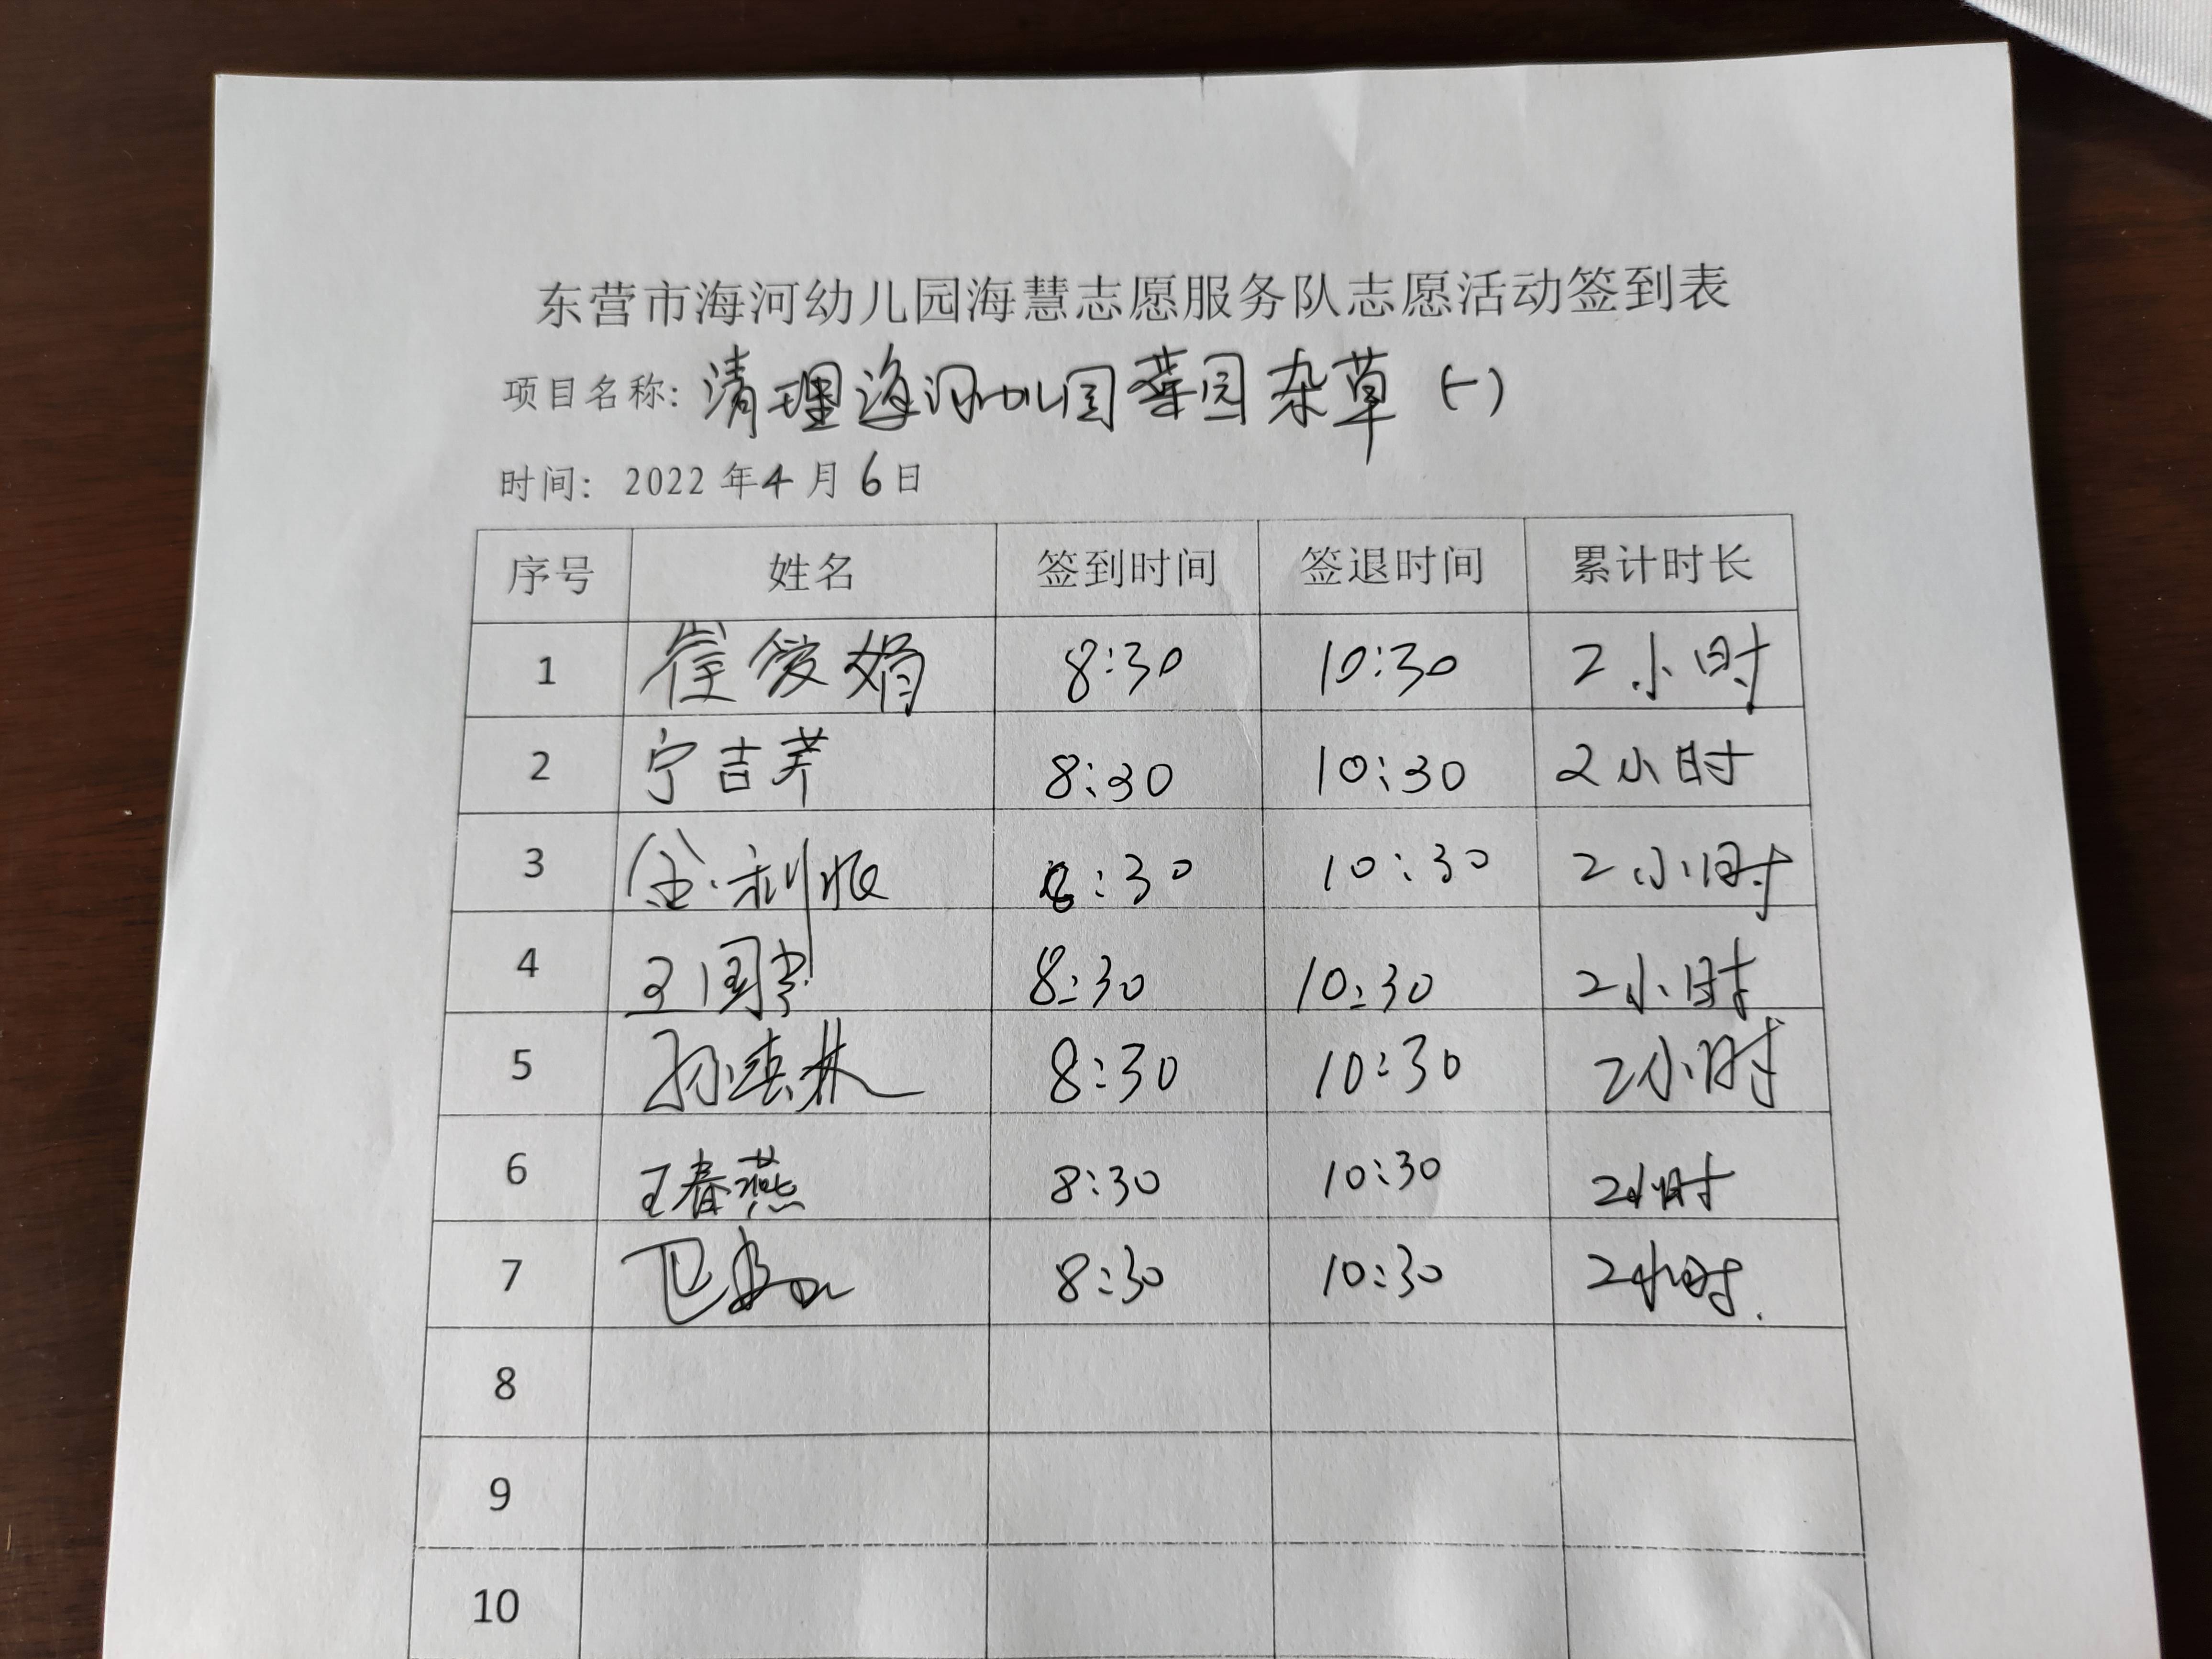 东营市海河幼儿园海慧志愿服务队志愿活动签到表
项目名称: 清理海河幼儿园菜园杂草 (一)
时间: 2022年4月6日
序号 姓名 签到时间 签退时间 累计时长
1 崔俊娟 8:30 10:30 2小时
2 宁吉荞 8:30 10:30 2小时
3 8:30 10:30 2小时
4 8:30 10:30 2小时
5 8:30 10:30 2小时
6 王春燕 8:30 10:30 2小时
7 8:30 10:30 2小时.
8
9
10